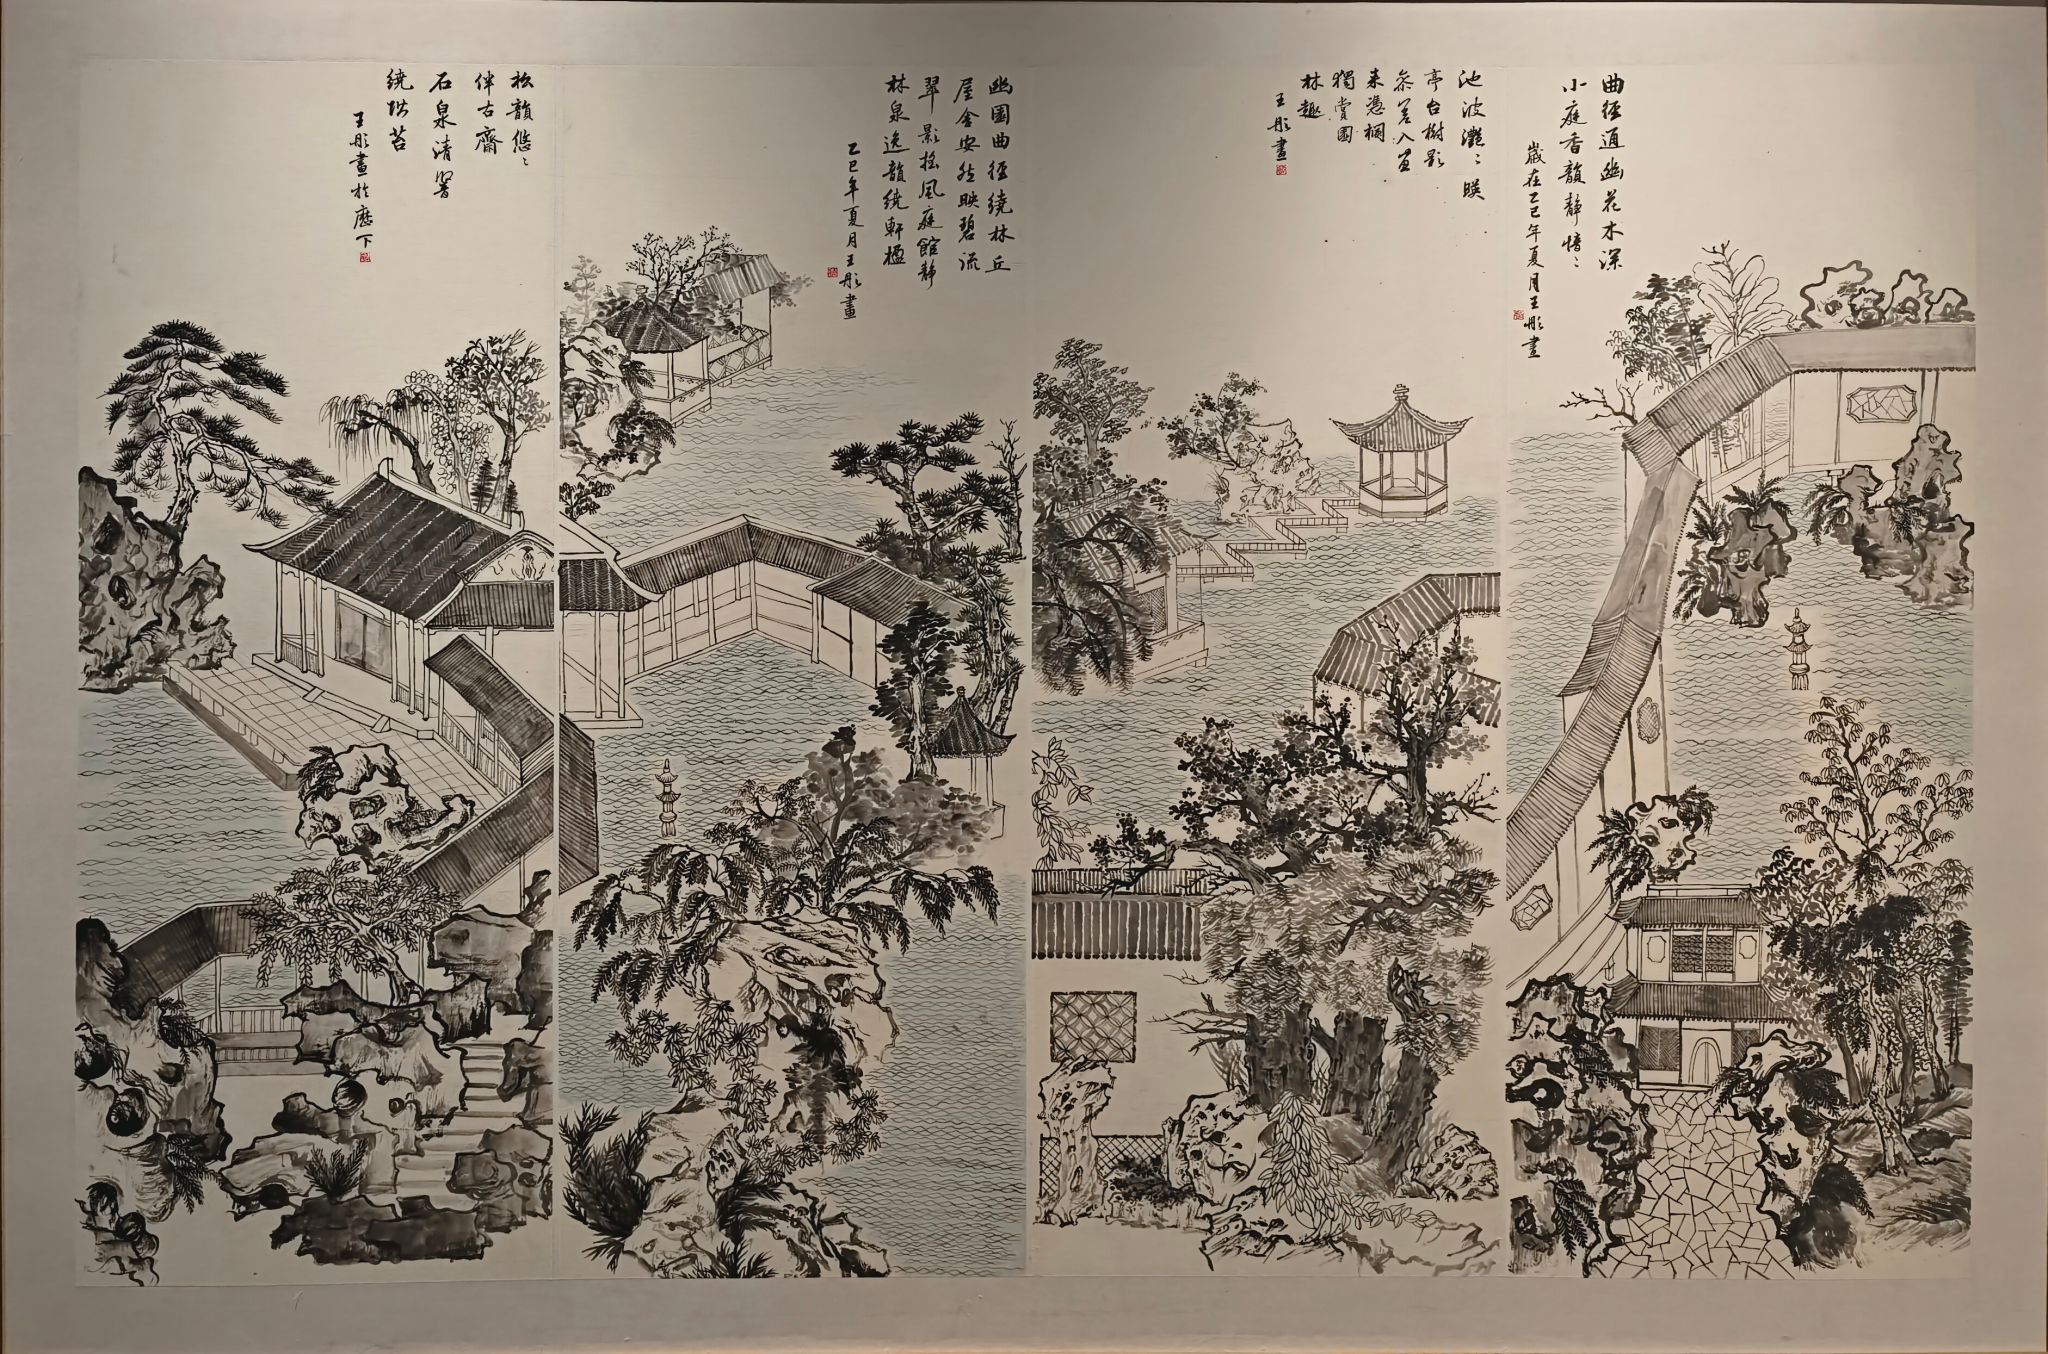 曲径通幽花木深
小庭香韻静愔〻
歲在乙巳年夏月王彤畫
池波灔〻映
亭台樹影
参差入画
来憑欄
獨賞園
林趣
王彤畫
幽園曲径繞林丘
屋舍安然映碧流
翠影摇風庭館静
林泉逸韻繞軒楹
乙巳年夏月王彤畫
松韻悠〻
伴古齋
石泉清響
繞階苔
王彤畫於歷下